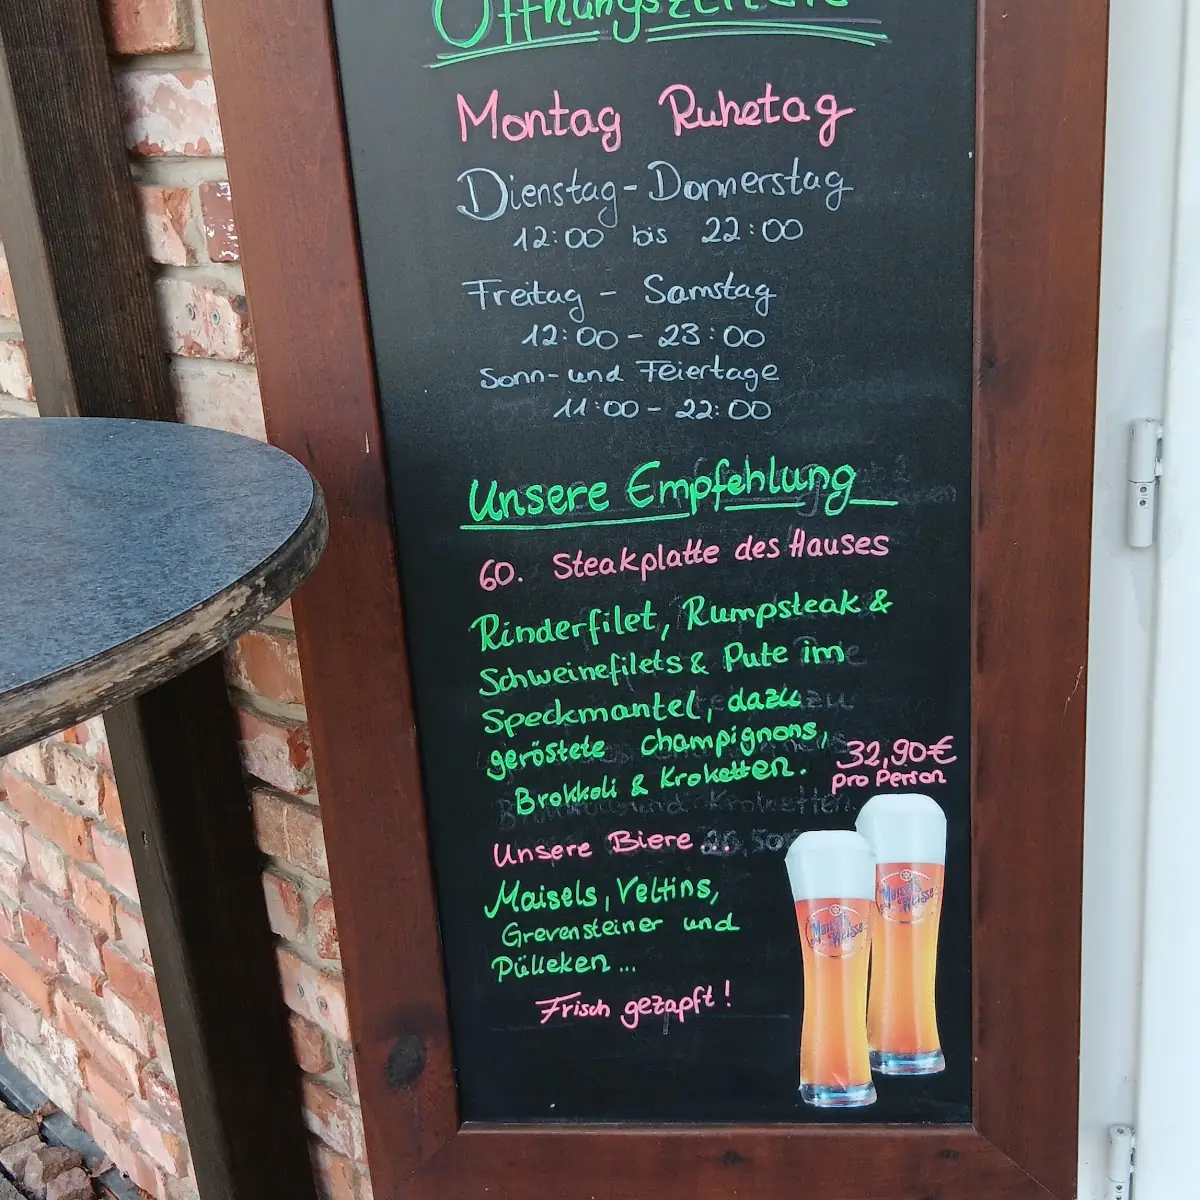 Öffnungszeiten
Montag Ruhetag
Dienstag - Donnerstag
12:00 bis 22:00
Freitag - Samstag
12:00 - 23:00
Sonn- und Feiertage
11:00 - 22:00
Unsere Empfehlung
60. Steakplatte des Hauses
Rinderfilet, Rumpsteak &
Schweinefilets & Pute im
Speckmantel, dazu
geröstete Champignons,
Brokkoli & Kroketten.
32,90€
pro Person
Unsere Biere...
Maisels, Veltins,
Grevensteiner und
Pülleken...
Frisch gezapft!
Maisel's
Weisse
Maisel's
Weisse